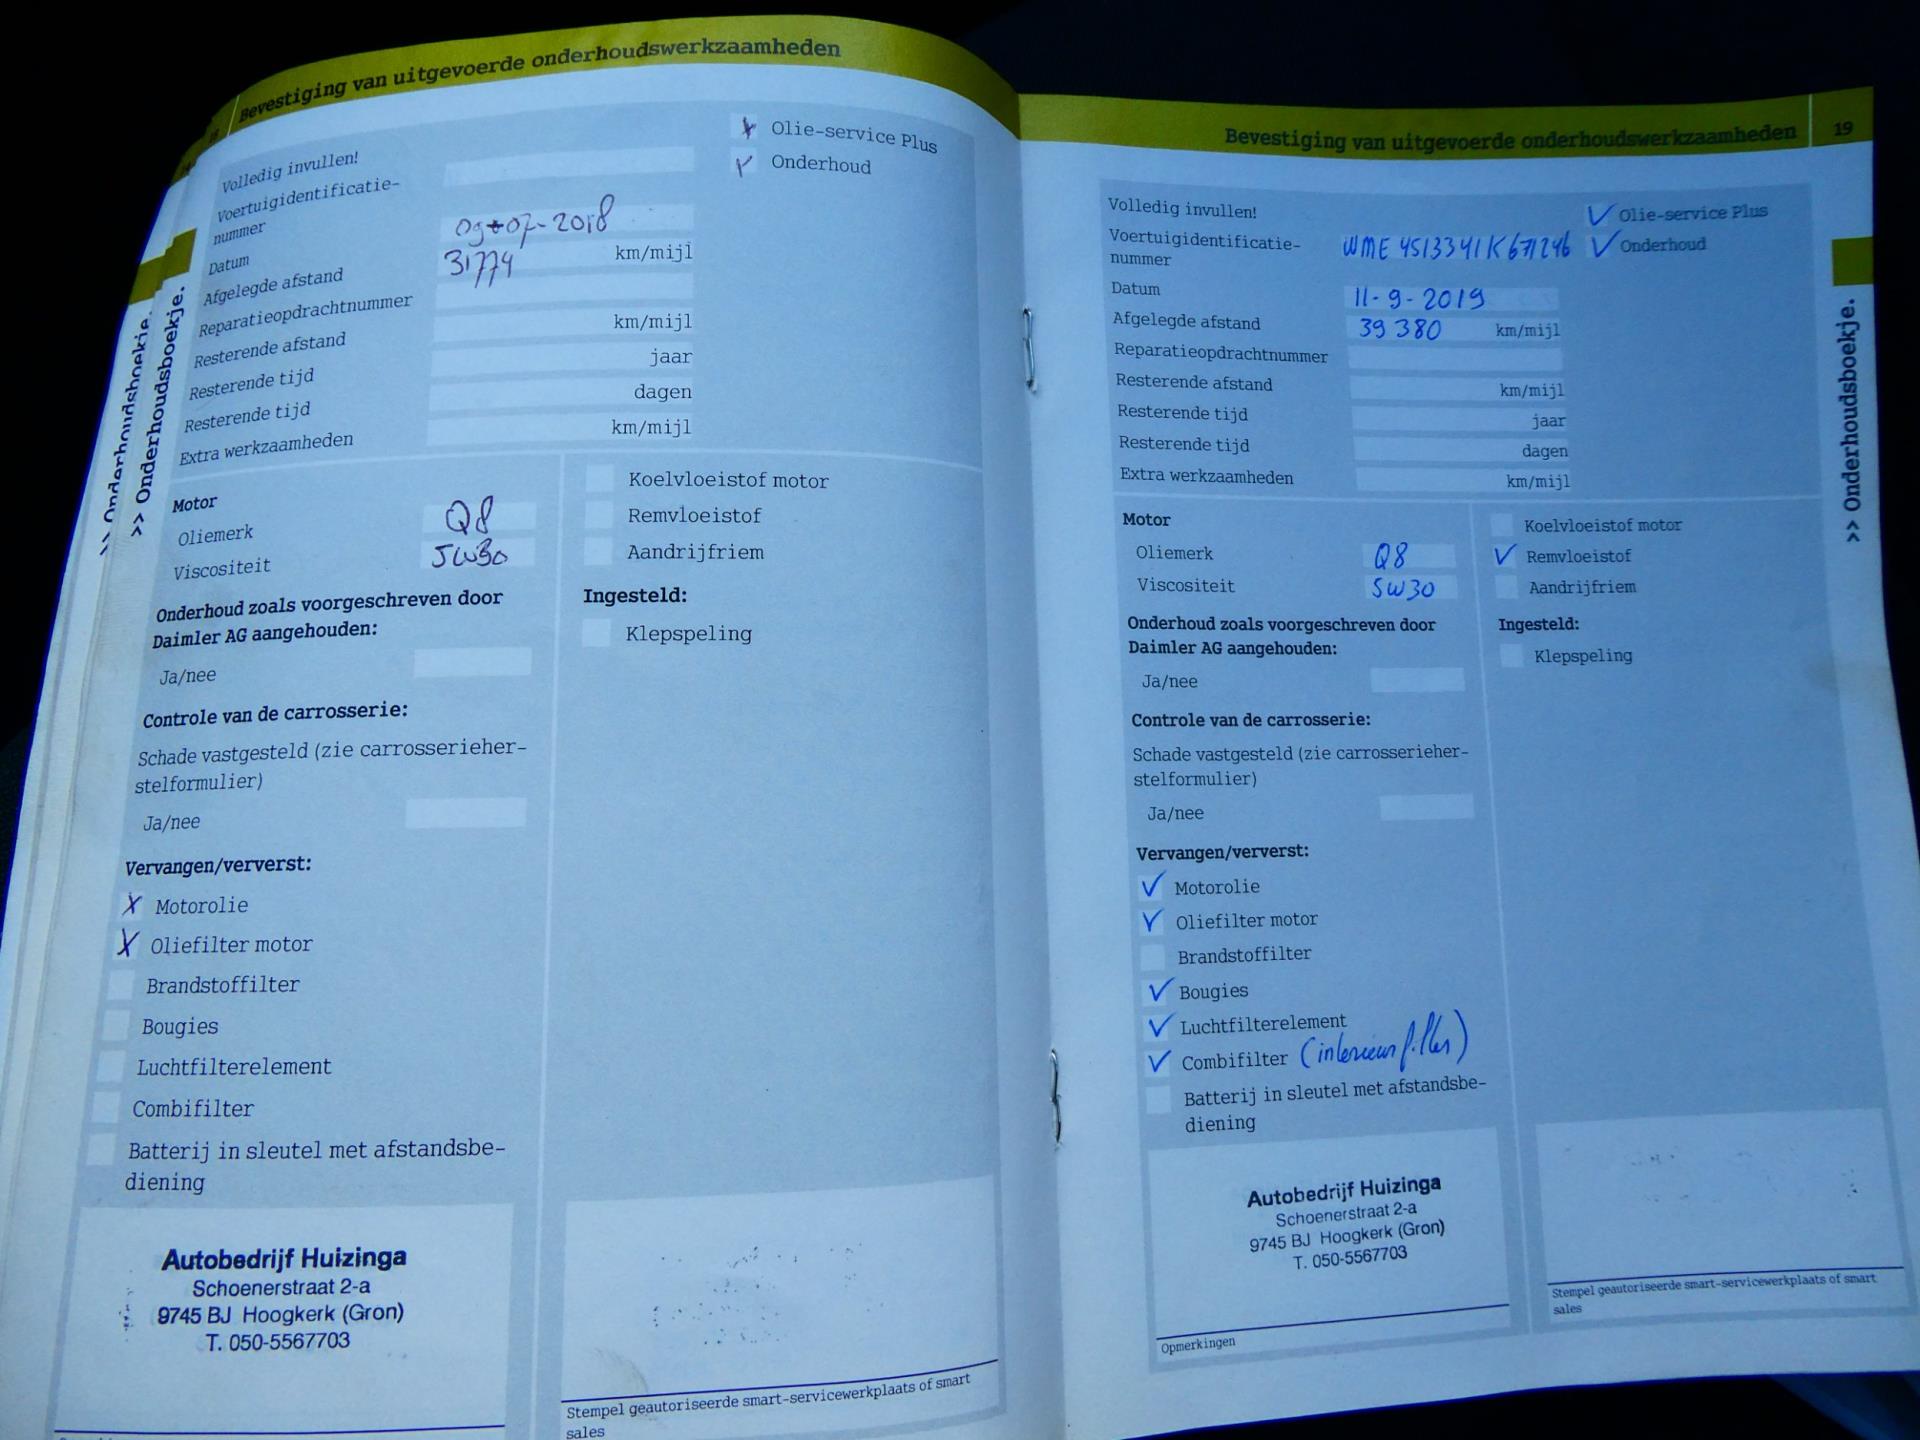 Bevestiging van uitgevoerde onderhoudswerkzaamheden
Volledig invullen!
Olie-service Plus
Onderhoud
Voertuigidentificatie-
nummer
Datum 09-07-2018
Afgelegde afstand 31774 km/mijl
Reparatieopdrachtnummer
Resterende afstand km/mijl
Resterende tijd jaar
Resterende tijd dagen
Extra werkzaamheden km/mijl
Motor
Oliemerk Q8
Viscositeit 5W30
Koelvloeistof motor
Remvloeistof
Aandrijfriem
Onderhoud zoals voorgeschreven door
Daimler AG aangehouden:
Ja/nee
Ingesteld:
Klepspeling
Controle van de carrosserie:
Schade vastgesteld (zie carrosserieher-
stelformulier)
Ja/nee
Vervangen/ververst:
X Motorolie
X Oliefilter motor
Brandstoffilter
Bougies
Luchtfilterelement
Combifilter
Batterij in sleutel met afstandsbe-
diening
Autobedrijf Huizinga
Schoenerstraat 2-a
9745 BJ Hoogkerk (Gron)
T. 050-5567703
Stempel geautoriseerde smart-servicewerkplaats of smart
sales
>> Onderhoudsboekje.
>> Onderhoudsboekje.
Bevestiging van uitgevoerde onderhoudswerkzaamheden 19
Volledig invullen!
✓ Olie-service Plus
✓ Onderhoud
Voertuigidentificatie-
nummer WME4513341K671246
Datum 11-9-2019
Afgelegde afstand 39380 km/mijl
Reparatieopdrachtnummer
Resterende afstand km/mijl
Resterende tijd jaar
Resterende tijd dagen
Extra werkzaamheden km/mijl
Motor
Oliemerk Q8
Viscositeit 5W30
Koelvloeistof motor
✓ Remvloeistof
Aandrijfriem
Onderhoud zoals voorgeschreven door
Daimler AG aangehouden:
Ja/nee
Ingesteld:
Klepspeling
Controle van de carrosserie:
Schade vastgesteld (zie carrosserieher-
stelformulier)
Ja/nee
Vervangen/ververst:
✓ Motorolie
✓ Oliefilter motor
Brandstoffilter
✓ Bougies
✓ Luchtfilterelement
✓ Combifilter (interieurfilter)
Batterij in sleutel met afstandsbe-
diening
Autobedrijf Huizinga
Schoenerstraat 2-a
9745 BJ Hoogkerk (Gron)
T. 050-5567703
Opmerkingen
Stempel geautoriseerde smart-servicewerkplaats of smart
sales
>> Onderhoudsboekje.